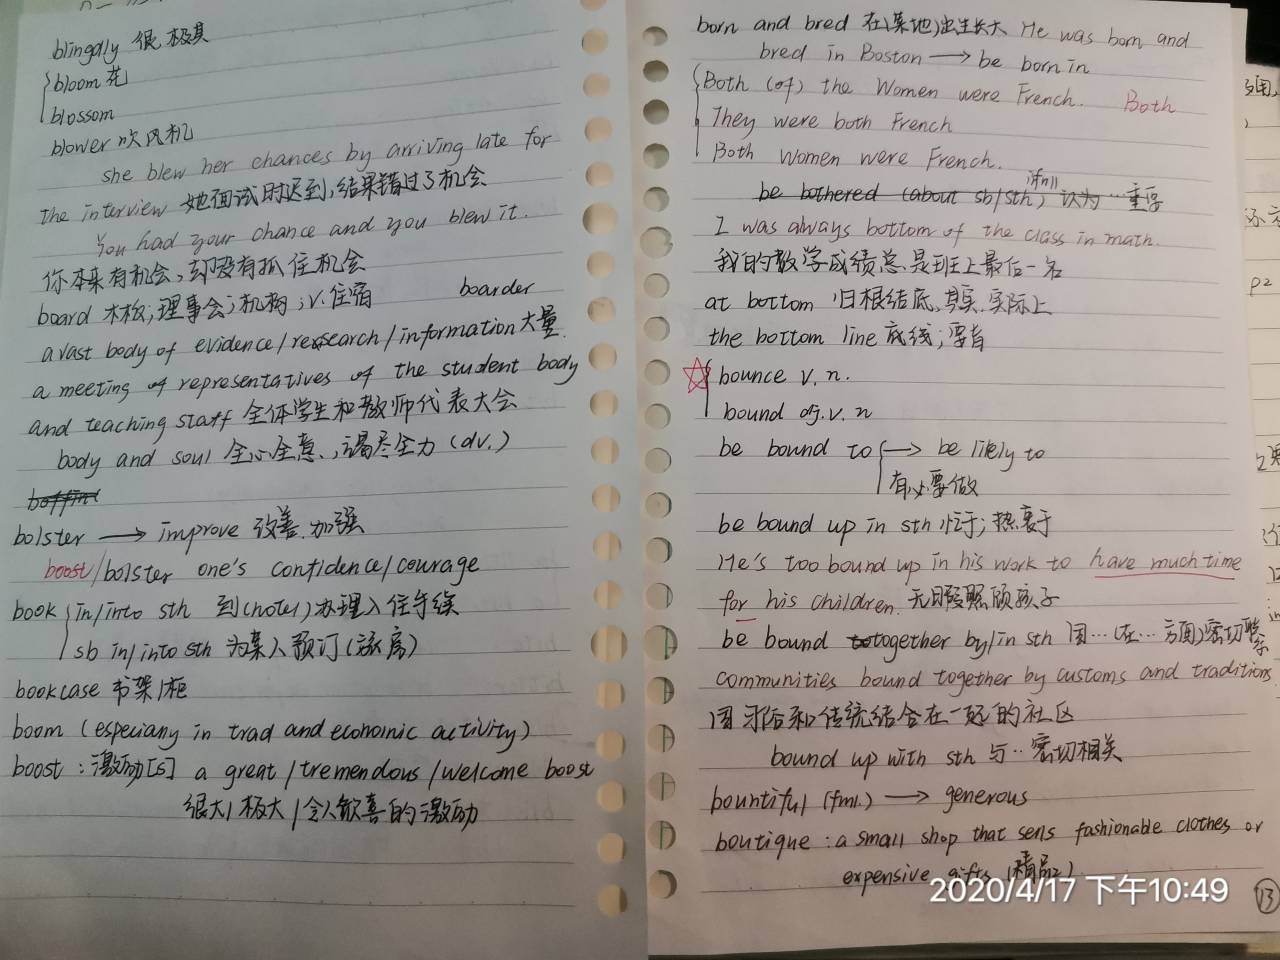 blingdly 很 极其
bloom 花
blossom
blower 吹风机
she blew her chances by arriving late for
the interview 她面试时迟到,结果错过了机会
You had your chance and you blew it.
你本来有机会,却没有抓住机会
board 木板;理事会;机构;v.住宿 boarder
a vast body of evidence/research/information 大量
a meeting of representatives of the student body
and teaching staff 全体学生和教师代表大会
body and soul 全心全意,竭尽全力(adv.)
boffin
bolster → improve 改善.加强
boost/bolster one's confidence/courage
book in/into sth 到(hotel)办理入住手续
sb in/into sth 为某人预订(旅店)
bookcase 书架/柜
boom (especiany in trad and economic activity)
boost:激励[s] a great/tremendous/welcome boost
很大/极大/令人欢喜的激励
born and bred 在(某地)出生长大 He was born and
bred in Boston → be born in
Both (of) the Women were French. Both
They were both French
Both Women were French.
be bothered (about sb/sth) 认为…重要
I was always bottom of the class in math.
我的数学成绩总是班上最后一名
at bottom 归根结底,其实.实际上
the bottom line 底线;要旨
bounce v. n.
bound adj. v. n
be bound to → be likely to
有必要做
be bound up in sth 忙于;热衷于
He's too bound up in his work to have much time
for his children. 无暇照顾孩子
be bound together by/in sth 因…(在…方面)密切联系
communities bound together by customs and traditions
因习俗和传统结合在一起的社区
bound up with sth 与…密切相关
bountiful (fml.) → generous
boutique : a small shop that sens fashionable clothes or
expensive gifts (精品)
2020/4/17 下午10:49
13